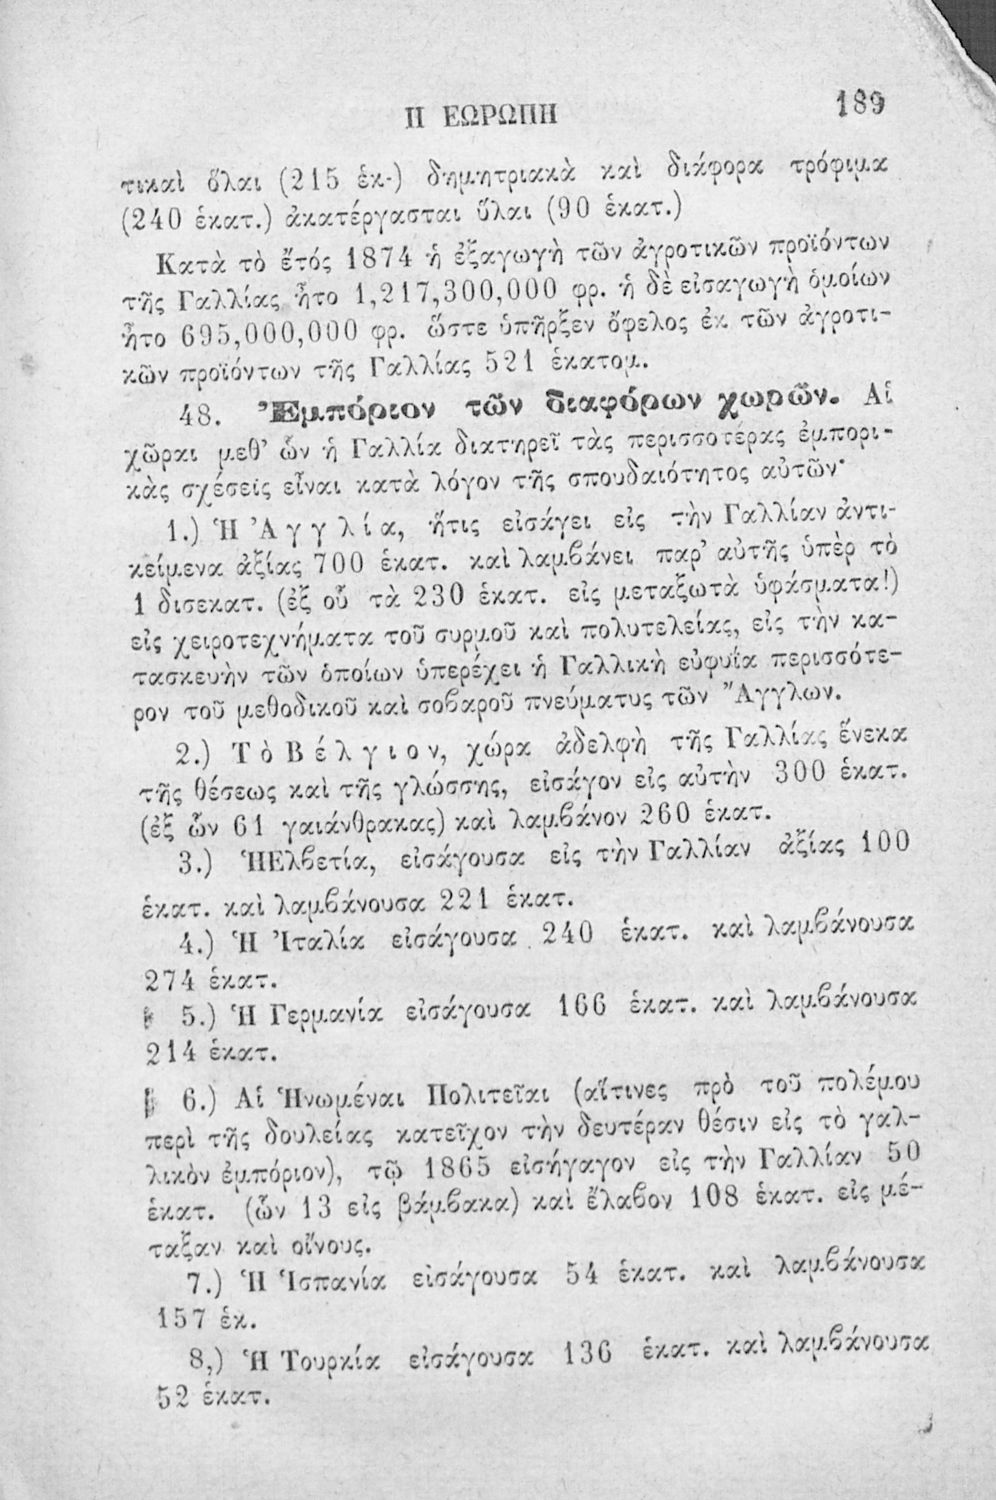 Η ΕΩΡΩΠΗ 189
τικαὶ ὅλαι (215 ἑκ·) δημητριακὰ καὶ διάφορα τρόφιμα
(240 ἑκατ.) ἀκατέργασται ὕλαι (90 ἑκατ.)
Κατὰ τὸ ἔτός 1874 ἡ ἐξαγωγὴ τῶν ἀγροτικῶν προϊόντων
τῆς Γαλλίας ἦτο 1,217,300,000 φρ. ἡ δὲ εἰσαγωγὴ ὁμοίων
ἦτο 695,000,000 φρ. ὥστε ὑπῆρξεν ὄφελος ἐκ τῶν ἀγροτι-
κῶν προϊόντων τῆς Γαλλίας 521 ἑκατομ.
48. Ἐμπόριον τῶν διαφόρων χωρῶν. Αἱ
χῶραι μεθ' ὧν ἡ Γαλλία διατηρεῖ τὰς περισσοτέρας ἐμπορι-
κὰς σχέσεις εἶναι κατὰ λόγον τῆς σπουδαιότητος αὐτῶν·
1.) Ἡ Ἀγγλία, ἥτις εἰσάγει εἰς τὴν Γαλλίαν ἀντι-
κείμενα ἀξίας 700 ἑκατ. καὶ λαμβάνει παρ' αὐτῆς ὑπὲρ τὸ
1 δισεκατ. (ἐξ οὗ τὰ 230 ἑκατ. εἰς μεταξωτὰ ὑφάσματα!)
εἰς χειροτεχνήματα τοῦ συρμοῦ καὶ πολυτελείας, εἰς τὴν κα-
τασκευὴν τῶν ὁποίων ὑπερέχει ἡ Γαλλικὴ εὐφυΐα περισσότε-
ρον τοῦ μεθοδικοῦ καὶ σοβαροῦ πνεύματυς τῶν Ἄγγλων.
2.) Τὸ Βέλγιον, χώρα ἀδελφὴ τῆς Γαλλίας ἕνεκα
τῆς θέσεως καὶ τῆς γλώσσης, εἰσάγον εἰς αὐτὴν 300 ἑκατ.
(ἐξ ὧν 61 γαιάνθρακας) καὶ λαμβάνον 260 ἑκατ.
3.) ἩΕλβετία, εἰσάγουσα εἰς τὴν Γαλλίαν ἀξίας 100
ἑκατ. καὶ λαμβάνουσα 221 ἑκατ.
4.) Ἡ Ἰταλία εἰσάγουσα 240 ἑκατ. καὶ λαμβάνουσα
274 ἑκατ.
5.) Ἡ Γερμανία εἰσάγουσα 166 ἑκατ. καὶ λαμβάνουσα
214 ἑκατ.
6.) Αἱ Ἡνωμέναι Πολιτεῖαι (αἵτινες πρὸ τοῦ πολέμου
περὶ τῆς δουλείας κατεῖχον τὴν δευτέραν θέσιν εἰς τὸ γαλ-
λικὸν ἐμπόριον), τῷ 1865 εἰσήγαγον εἰς τὴν Γαλλίαν 50
ἑκατ. (ὧν 13 εἰς βάμβακα) καὶ ἔλαβον 108 ἑκατ. εἰς μέ-
ταξαν καὶ οἴνους.
7.) Ἡ Ἱσπανία εἰσάγουσα 54 ἑκατ. καὶ λαμβάνουσα
157 ἑκ.
8,) Ἡ Τουρκία εἰσάγουσα 136 ἑκατ. καὶ λαμβάνουσα
52 ἑκατ.